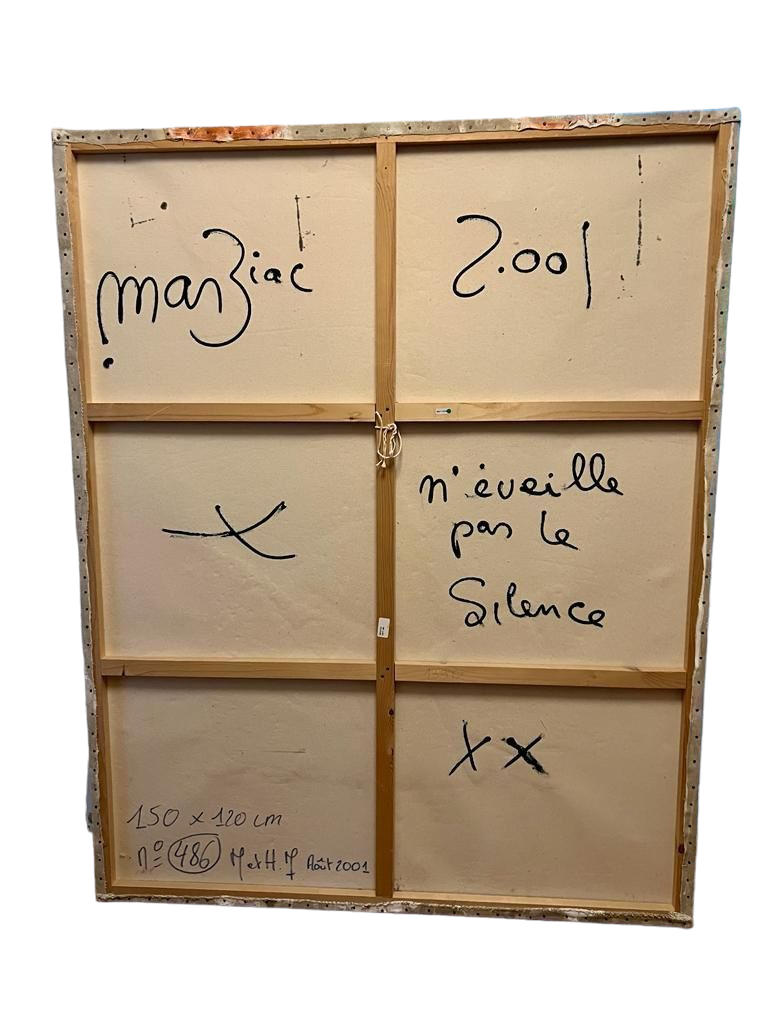 marziac
2.001
X
n'éveille
pas le
Silence
X X
150 x 120 cm
n° 486 M et H. M Août 2001